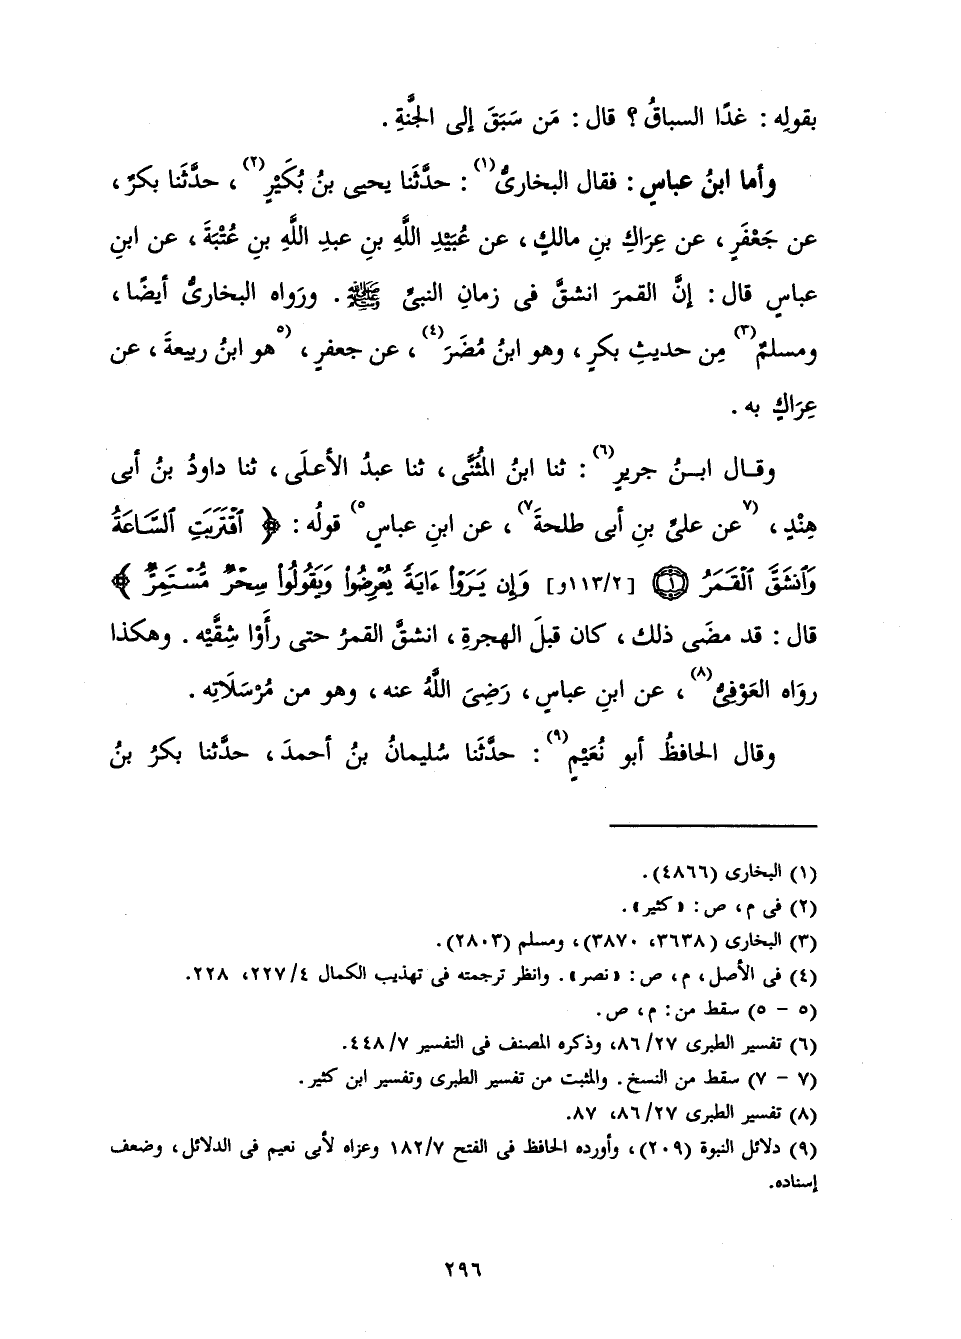 بقولِه : غدًا السباقُ ؟ قال : مَن سَبَقَ إلى الجنَّةِ .
وأما ابنُ عباسٍ : فقال البخارىُّ(١) : حدَّثَنا يحيى بنُ بُكَيْرٍ(٢) ، حدَّثَنا بكرٌ ،
عن جَعْفَرٍ ، عن عِرَاكِ بنِ مالكٍ ، عن عُبَيْدِ اللَّهِ بنِ عبدِ اللَّهِ بنِ عُتْبَةَ ، عن ابنِ
عباسٍ قال : إنَّ القمرَ انشقَّ فى زمانِ النبىِّ ﷺ . ورَواه البخارىُّ أيضًا ،
ومسلمٌ(٣) مِن حديثِ بكرٍ ، وهو ابنُ مُضَرَ(٤) ، عن جعفرٍ ، (٥هو ابنُ ربيعةَ ، عن
عِرَاكٍ به .
وقال ابنُ جريرٍ(٦) : ثنا ابنُ المُثَنَّى ، ثنا عبدُ الأعلَى ، ثنا داودُ بنُ أبى
هِنْدٍ ، (٧عن علىِّ بنِ أبى طلحةَ٧) ، عن ابنِ عباسٍ٥) قولُه : ﴿ ٱقْتَرَبَتِ ٱلسَّاعَةُ
وَٱنشَقَّ ٱلْقَمَرُ ۝١ [١١٣/٢و] وَإِن يَرَوْا۟ ءَايَةً يُعْرِضُوا۟ وَيَقُولُوا۟ سِحْرٌ مُّسْتَمِرٌّ ﴾
قال : قد مضَى ذلك ، كان قبلَ الهجرةِ ، انشقَّ القمرُ حتى رأَوْا شِقَّيْه . وهكذا
روَاه العَوْفِىُّ(٨) ، عن ابنِ عباسٍ ، رَضِىَ اللَّهُ عنه ، وهو من مُرْسَلَاتِه .
وقال الحافظُ أبو نُعَيْمٍ(٩) : حدَّثَنا سُليمانُ بنُ أحمدَ ، حدَّثنا بكرُ بنُ
(١) البخارى (٤٨٦٦).
(٢) فى م ، ص : « كثير » .
(٣) البخارى (٣٦٣٨، ٣٨٧٠)، ومسلم (٢٨٠٣).
(٤) فى الأصل ، م ، ص : « نصر » . وانظر ترجمته فى تهذيب الكمال ٤/٢٢٧، ٢٢٨.
(٥ - ٥) سقط من : م ، ص .
(٦) تفسير الطبرى ٢٧/٨٦، وذكره المصنف فى التفسير ٧/٤٤٨.
(٧ - ٧) سقط من النسخ . والمثبت من تفسير الطبرى وتفسير ابن كثير .
(٨) تفسير الطبرى ٢٧/٨٦، ٨٧.
(٩) دلائل النبوة (٢٠٩) ، وأورده الحافظ فى الفتح ٧/١٨٢ وعزاه لأبى نعيم فى الدلائل ، وضعف
إسناده.
٢٩٦